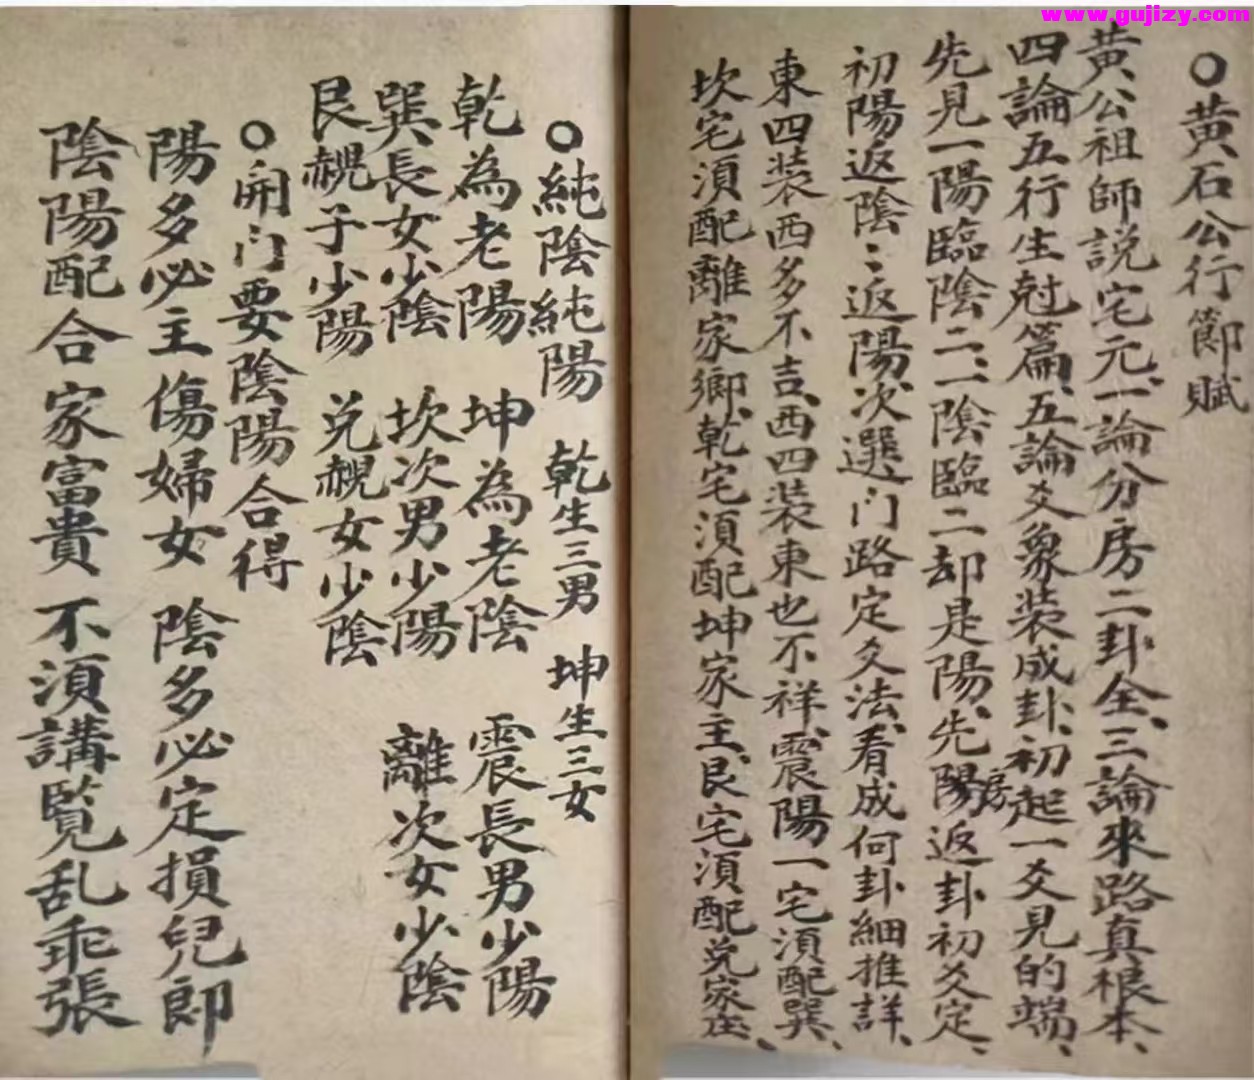 www.gujizy.com
○黃石公行節賦
黃公祖師説宅元、一論分房二卦全、三論來路真根本、
四論五行生尅篇、五論爻象裝成卦、初起一爻見的端、
先見一陽臨陰二、一陰臨二却是陽、先陽房返卦初爻定、
初陽返陰〻返陽、次選門路定爻法、看成何卦細推詳、
東四装西多不吉、西四装東也不祥、震陽一宅須配巽、
坎宅須配離家鄉、乾宅須配坤家主、艮宅須配兌家庄、
○純陰純陽 乾生三男 坤生三女
乾為老陽 坤為老陰 震長男少陽
巽長女少陰 坎次男少陽 離次女少陰
艮覜子少陽 兌覜女少陰
○開门要陰陽合得
陽多必主傷婦女 陰多必定損兒郎
陰陽配合家富貴 不須講覧乱乖張